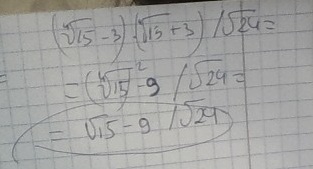 (∜15 - 3) · (∜15 + 3) / √24 =
= (∜15)² - 9 / √24 =
= √15 - 9 / √24